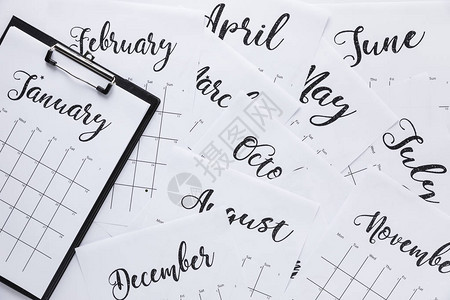 February
April
June
January
Marc
May
Octo
July
August
November
December